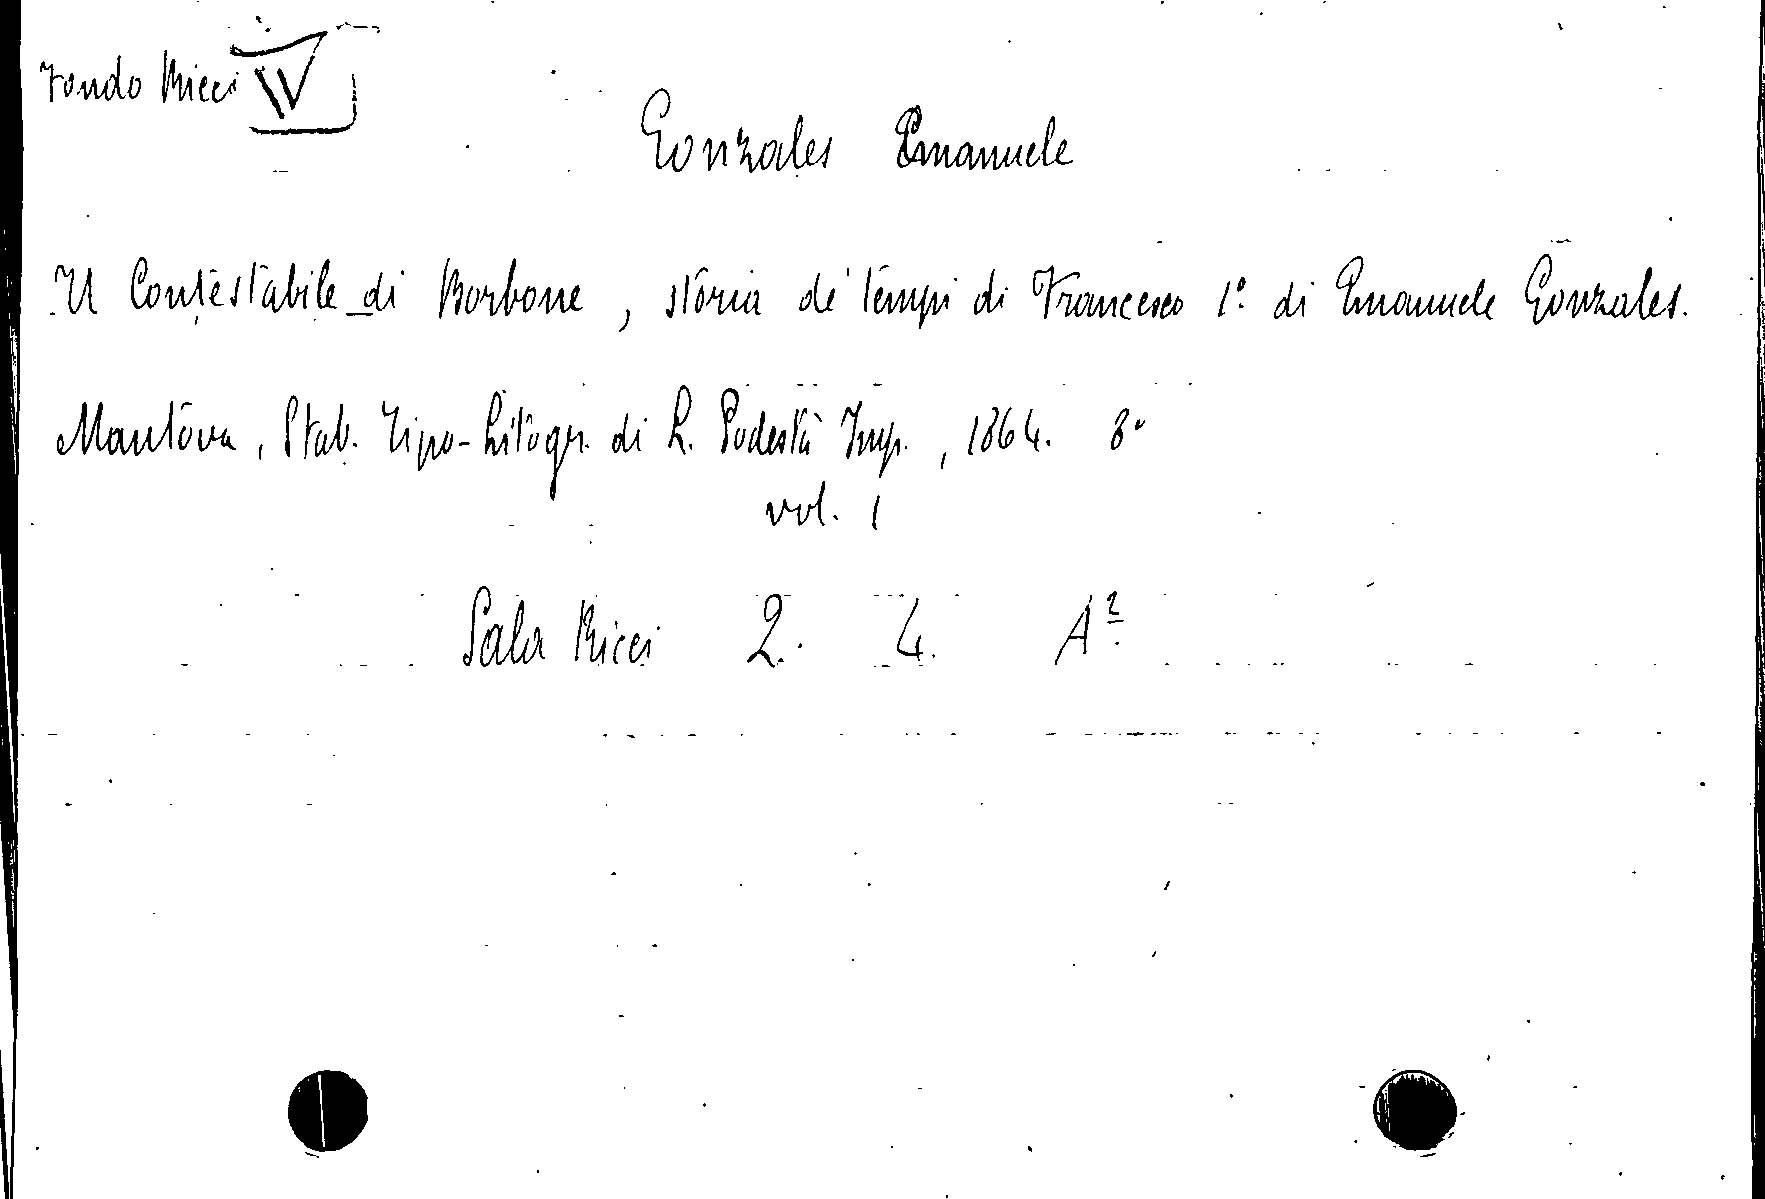 Fondo Ricci IV
Gonzales Emanuele
Il Contestabile di Borbone, storia de' tempi di Francesco 1º. di Emanuele Gonzales.
Mantova, Stab. Tipo-Litogr. di L. Podestà Imp., 1864. 8º
vol. 1
Sala Ricci 2. 4. A²